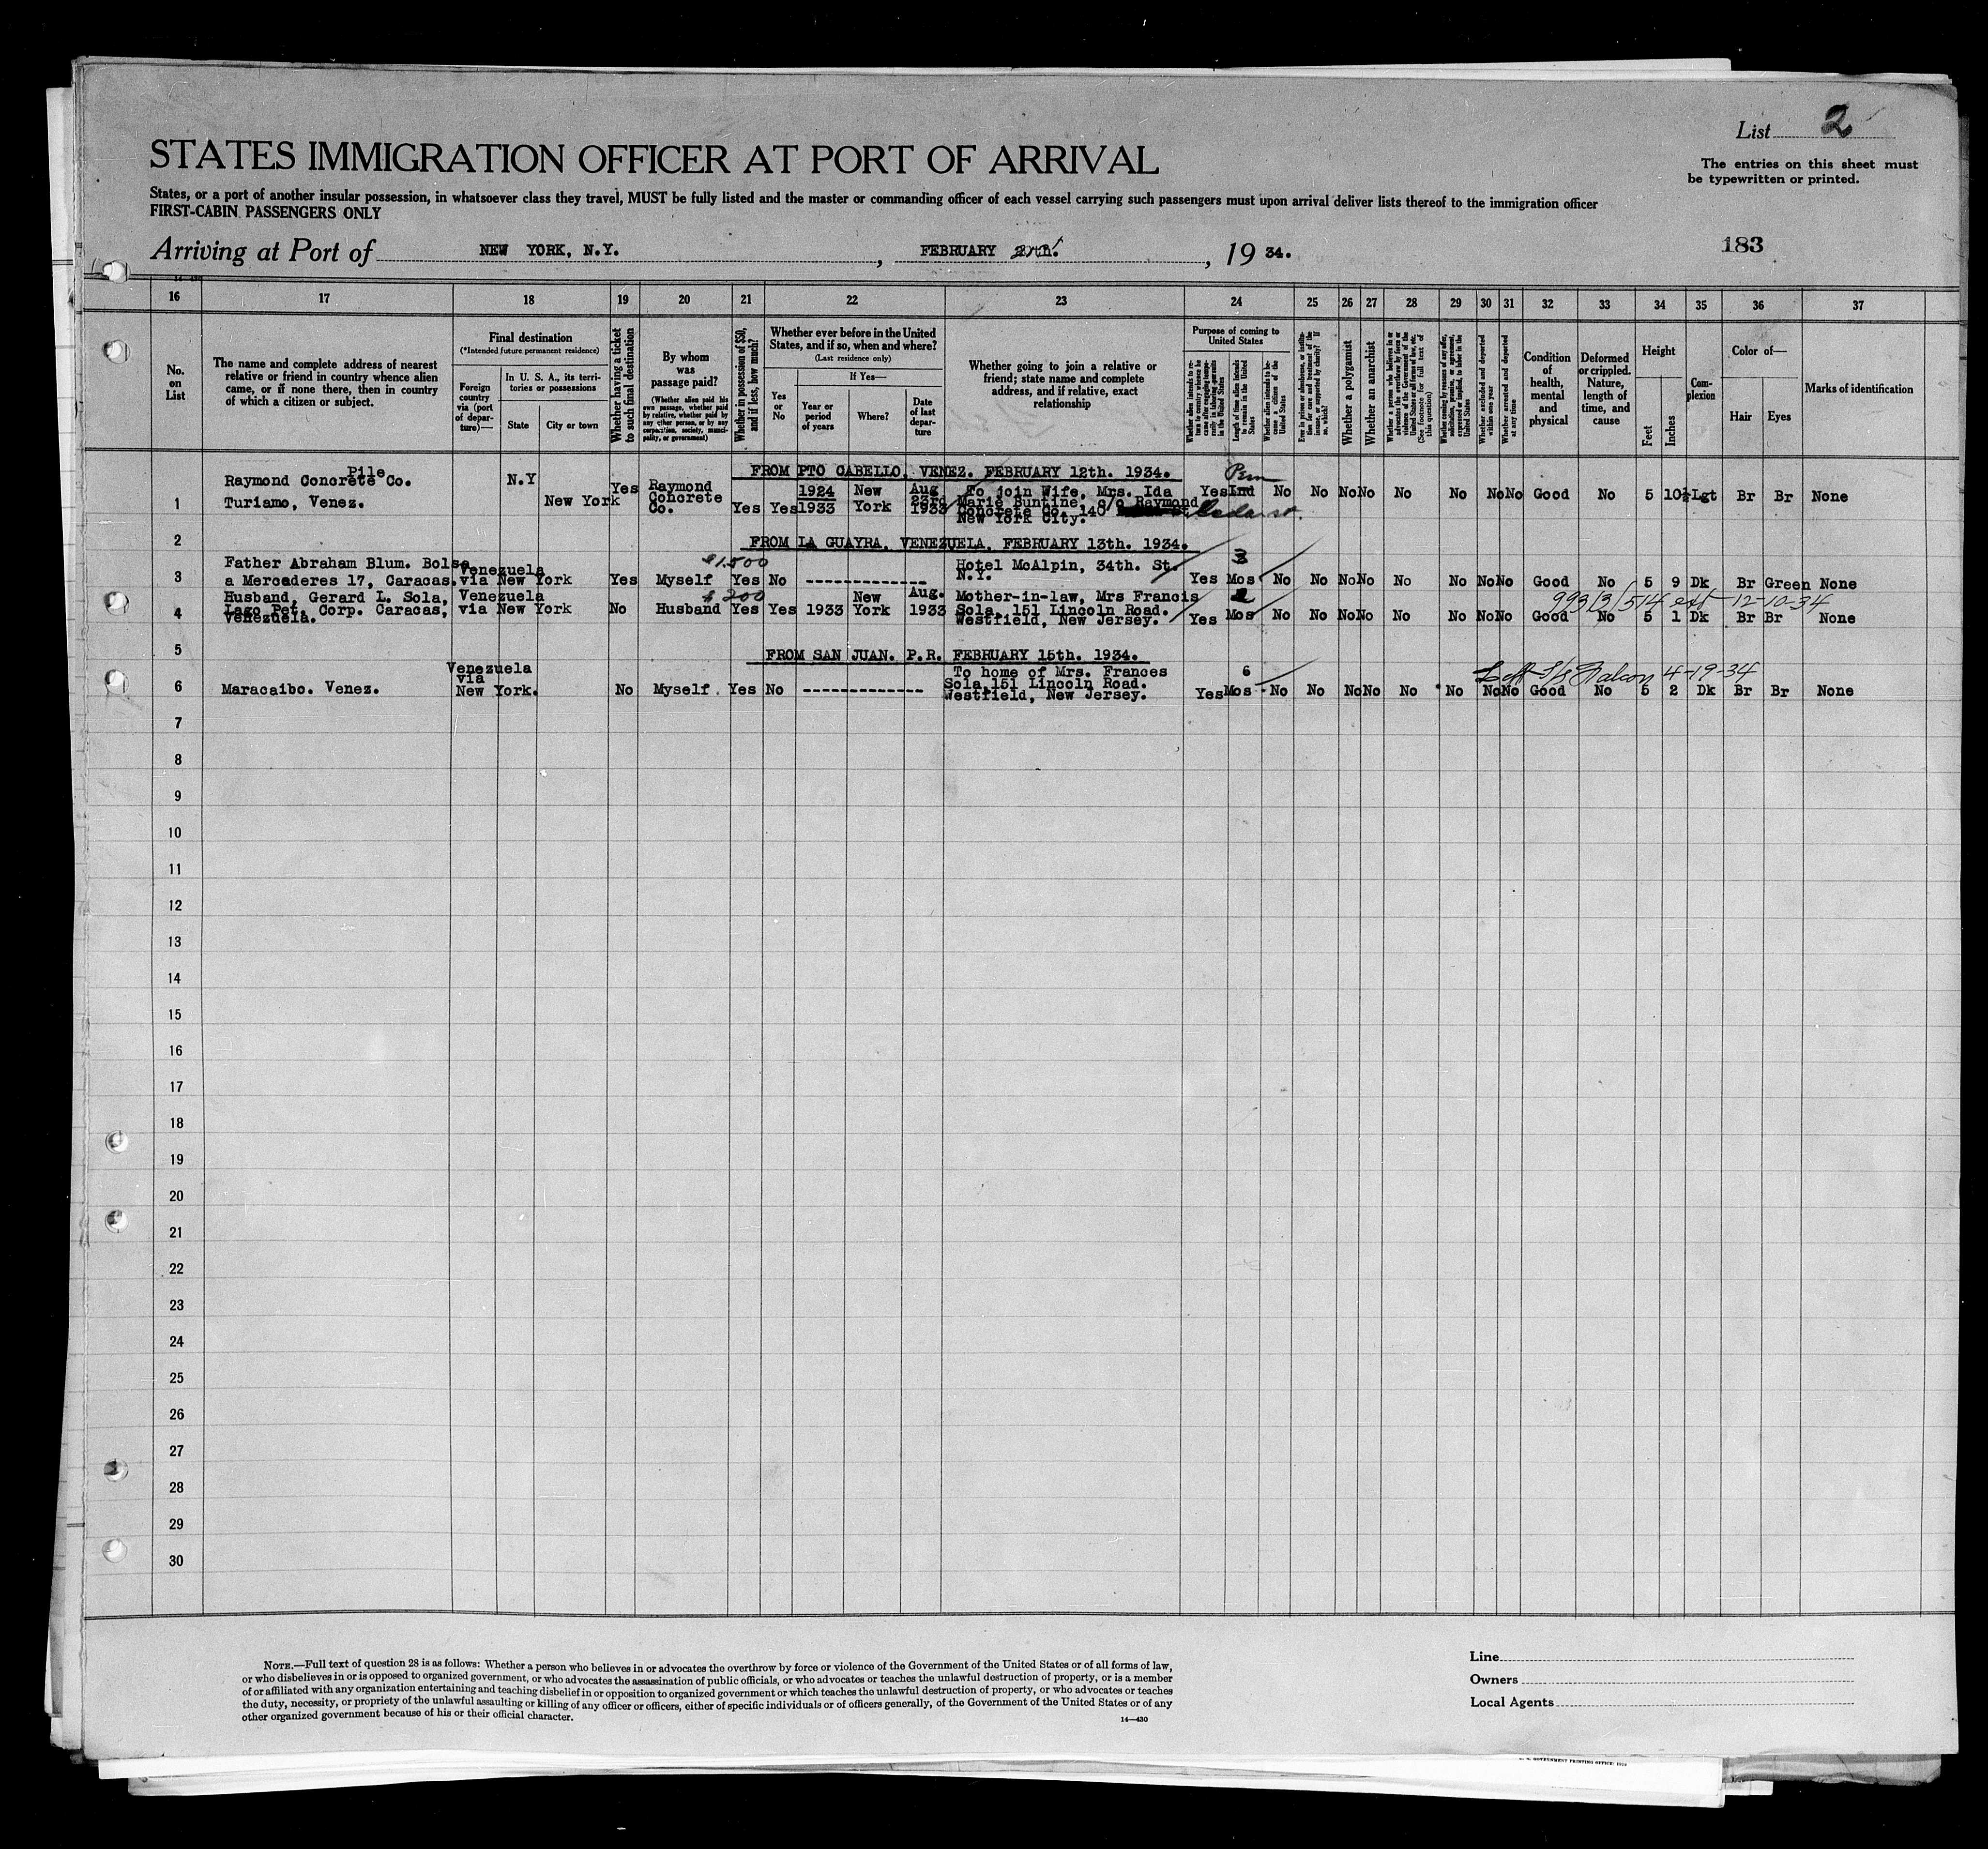 List 2
STATES IMMIGRATION OFFICER AT PORT OF ARRIVAL
The entries on this sheet must
be typewritten or printed.
States, or a port of another insular possession, in whatsoever class they travel, MUST be fully listed and the master or commanding officer of each vessel carrying such passengers must upon arrival deliver lists thereof to the immigration officer
FIRST-CABIN PASSENGERS ONLY
Arriving at Port of NEW YORK, N.Y., FEBRUARY, 19 34.
183
16 17 18 19 20 21 22 23 24 25 26 27 28 29 30 31 32 33 34 35 36 37
No.
on
List
The name and complete address of nearest
relative or friend in country whence alien
came, or if none there, then in country
of which a citizen or subject.
Final destination
(*Intended future permanent residence)
Foreign
country
via (port
of depar-
ture)—
In U. S. A., its terri-
tories or possessions
State
City or town
Whether having a ticket
to such final destination
By whom
was
passage paid?
(Whether alien paid his
own passage, whether paid
by relative, whether paid by
any other person, or by any
corporation, society, munici-
pality, or government)
Whether in possession of $50,
and if less, how much?
Whether ever before in the United
States, and if so, when and where?
(Last residence only)
Yes
or
No
If Yes—
Year or
period
of years
Where?
Date
of last
depar-
ture
Whether going to join a relative or
friend; state name and complete
address, and if relative, exact
relationship
Purpose of coming to
United States
Whether alien intends to re-
turn to country whence he
came after engaging tempo-
rarily in laboring pursuits
in the United States
Length of time alien intends
to remain in the United
States
Whether alien intends to be-
come a citizen of the
United States
Ever in prison or almshouse, or institu-
tion for care and treatment of the
insane, or supported by charity? If
so, which?
Whether a polygamist
Whether an anarchist
Whether a person who believes in or
advocates the overthrow by force or
violence of the Government of the
United States or all forms of law, etc.
(See footnote for full text of
this question)
Whether coming by reason of any offer,
solicitation, promise, or agreement,
expressed or implied, to labor in the
United States
Whether excluded and deported
within one year
Whether arrested and deported
at any time
Condition
of
health,
mental
and
physical
Deformed
or crippled.
Nature,
length of
time, and
cause
Height
Feet
Inches
Com-
plexion
Color of—
Hair
Eyes
Marks of identification
FROM PTO CABELLO, VENEZ. FEBRUARY 12th. 1934.
Pile
Raymond Concrete Co. N.Y Yes Raymond 1924 New Aug To join Wife, Mrs. Ida Yes Ind No No No No No No No No Good No 5 10½ Lgt Br Br None
1 Turiamo, Venez. New York Concrete Co. Yes Yes 1933 York 23rd 1933 Marie Buntine, c/o Raymond
Concrete Co. 140 Cedar st.
New York City.
2 FROM LA GUAYRA, VENEZUELA, FEBRUARY 13th. 1934.
$1,500 3
Father Abraham Blum. Bolsa Venezuela Hotel McAlpin, 34th. St.
3 a Mercaderes 17, Caracas. via New York Yes Myself Yes No ------------- N.Y. Yes Mos No No No No No No No No Good No 5 9 Dk Br Green None
$200 993/3/514 ext 12-10-34
Husband, Gerard L. Sola, Venezuela New Aug. Mother-in-law, Mrs Francis
4 Lago Pet. Corp. Caracas, via New York No Husband Yes Yes 1933 York 1933 Sola, 151 Lincoln Road. Yes Mos No No No No No No No No Good No 5 1 Dk Br Br None
Venezuela. Westfield, New Jersey.
5 FROM SAN JUAN. P.R. FEBRUARY 15th. 1934.
Venezuela To home of Mrs. Frances 6 4-19-34
6 Maracaibo. Venez. via New York. No Myself Yes No ------------- Sola, 151 Lincoln Road. Yes Mos No No No No No No No No Good No 5 2 Dk Br Br None
Westfield, New Jersey.
7
8
9
10
11
12
13
14
15
16
17
18
19
20
21
22
23
24
25
26
27
28
29
30
NOTE.—Full text of question 28 is as follows: Whether a person who believes in or advocates the overthrow by force or violence of the Government of the United States or of all forms of law,
or who disbelieves in or is opposed to organized government, or who advocates the assassination of public officials, or who advocates or teaches the unlawful destruction of property, or is a member
of or affiliated with any organization entertaining and teaching disbelief in or opposition to organized government or which teaches the unlawful destruction of property, or who advocates or teaches
the duty, necessity, or propriety of the unlawful assaulting or killing of any officer or officers, either of specific individuals or of officers generally, of the Government of the United States or of any
other organized government because of his or their official character.
14—430
Line
Owners
Local Agents